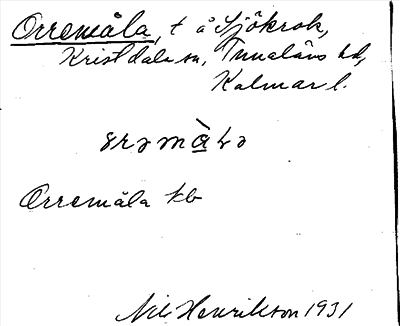 Orremåla, t å Sjökrok,
Kristdala sn, Tunaläns hd,
Kalmar l.
ɤrəmàlə
Orremåla kb
Nils Henrikson 1931